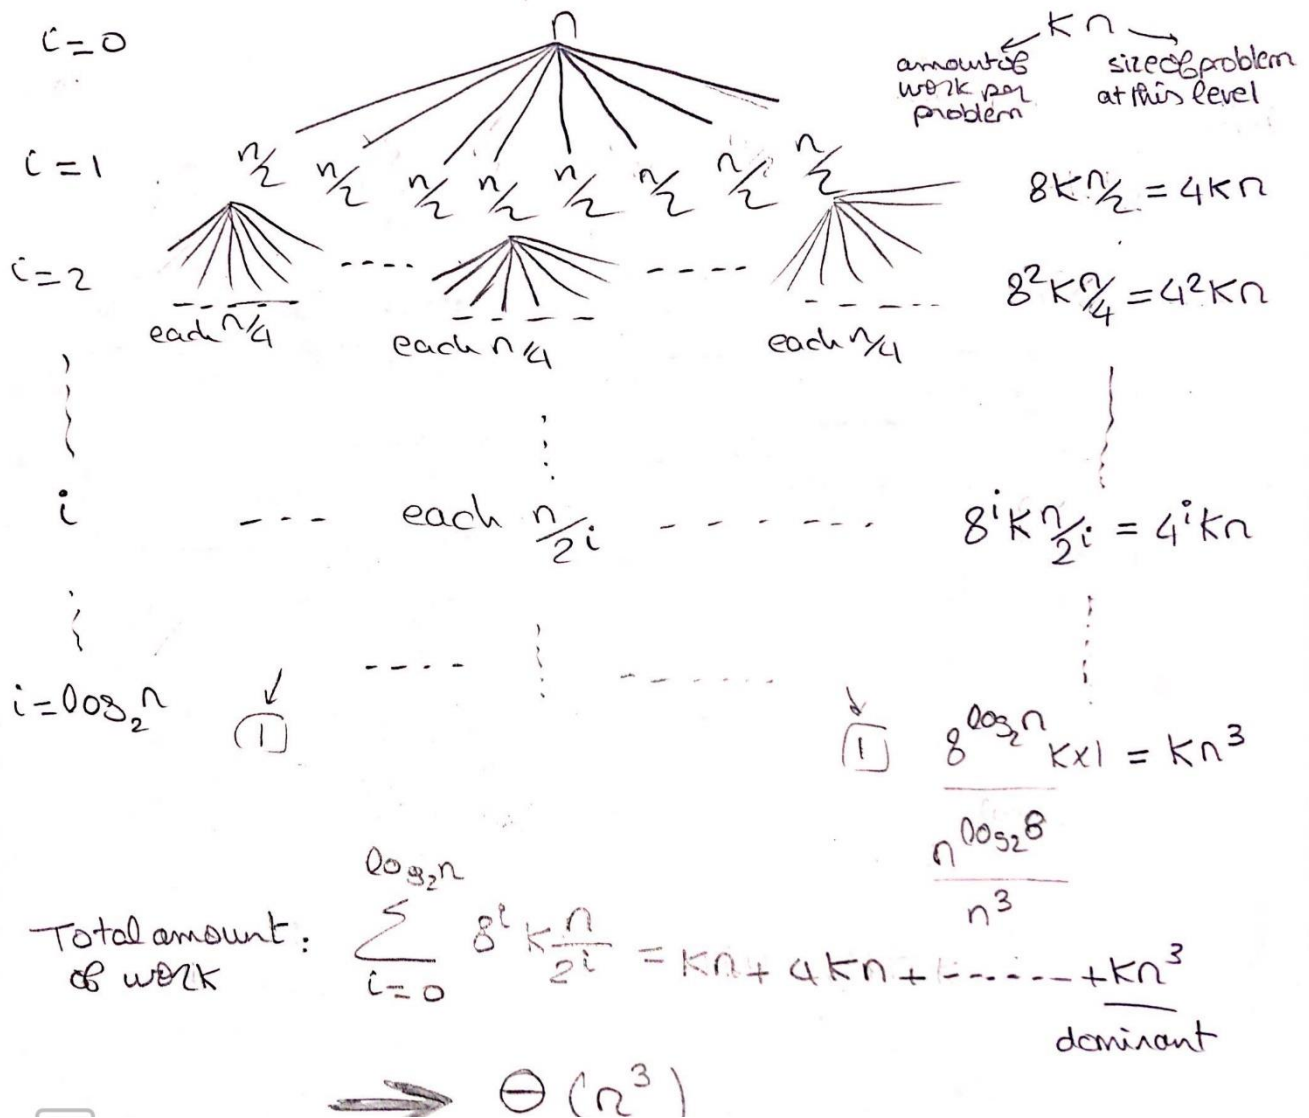 i=0 n kn
amount of work per problem size of problem at this level
i=1 n/2 n/2 n/2 n/2 n/2 n/2 n/2 n/2 8Kn/2 = 4Kn
i=2 8²Kn/4 = 4²Kn
each n/4 each n/4 each n/4
i each n/2^i 8^i K n/2^i = 4^i Kn
i=log₂n 1 1 8^(log₂n) K×1 = Kn³
n^(log₂8)
n³
Total amount of work: ∑_{i=0}^{log₂n} 8^i K n/2^i = Kn + 4Kn + ------ + Kn³
dominant
Θ(n³)